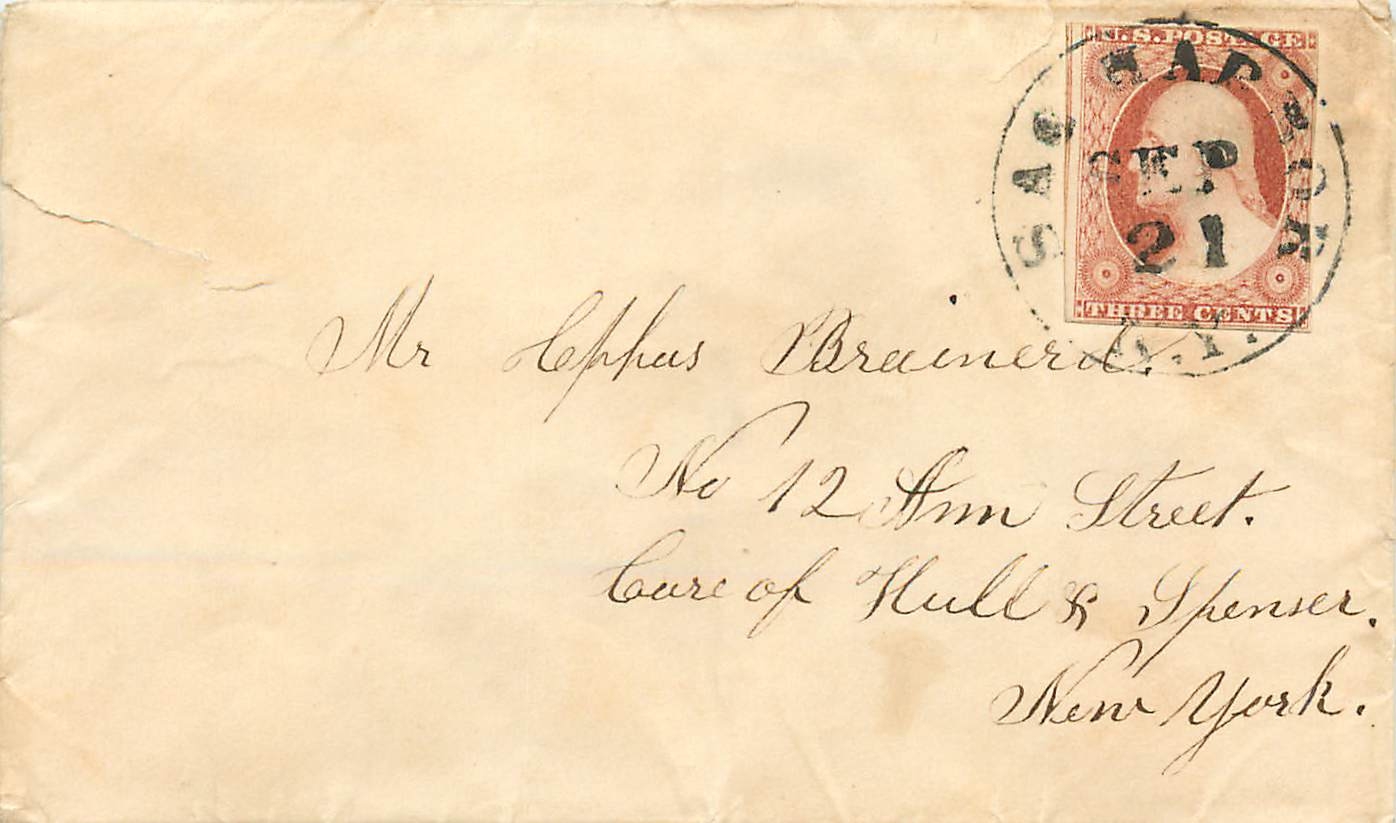 U.S. POSTAGE
SAG HARBOR
SEP
21
N.Y.
THREE CENTS
Mr Cephas Brainerd.
No 12 Ann Street.
Care of Hull & Spenser.
New York.